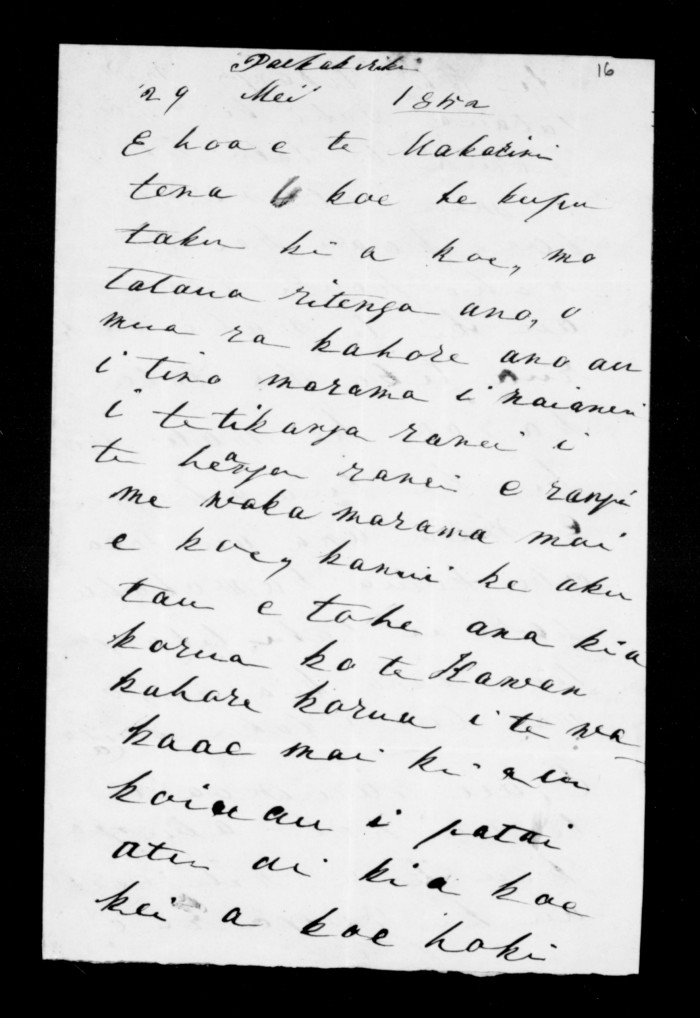 Paekakariki
16
29 Mei 1852
E hoa e te Makarini
tena koe he kupu
taku ki a koe, mo
tataua ritenga ano, o
mua ra kahore ano au
i tino marama i naianei
i te tikanga ranei i
te henga ranei e rangi
me waka marama mai
e koe, kanui ke aku
tau e tohe ana kia
korua ko te Kawan
kahore korua i te wa
kaae mai ki au
koia au i patai
atu ai kia koe
kei a koe hoki